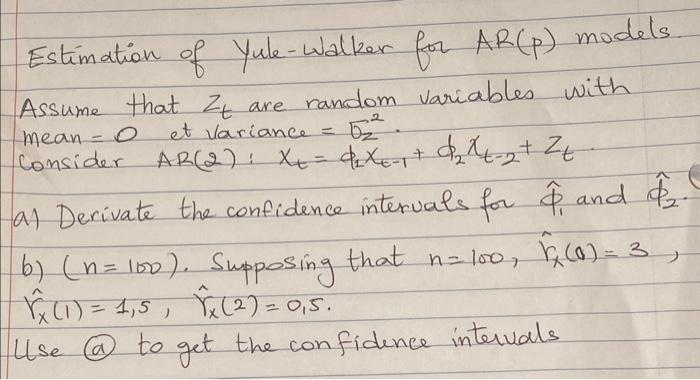 Estimation of Yule-Walker for AR(p) models.
Assume that Z_t are random variables with
mean = 0 et variance = σ_z^2.
Consider AR(2) : X_t = ϕ_1 X_{t-1} + ϕ_2 X_{t-2} + Z_t.
a) Derivate the confidence intervals for ϕ̂_1 and ϕ̂_2.
b) (n = 100). Supposing that n = 100, γ̂_x(0) = 3 ,
γ̂_x(1) = 1,5 , γ̂_x(2) = 0,5.
Use ⓐ to get the confidence intervals